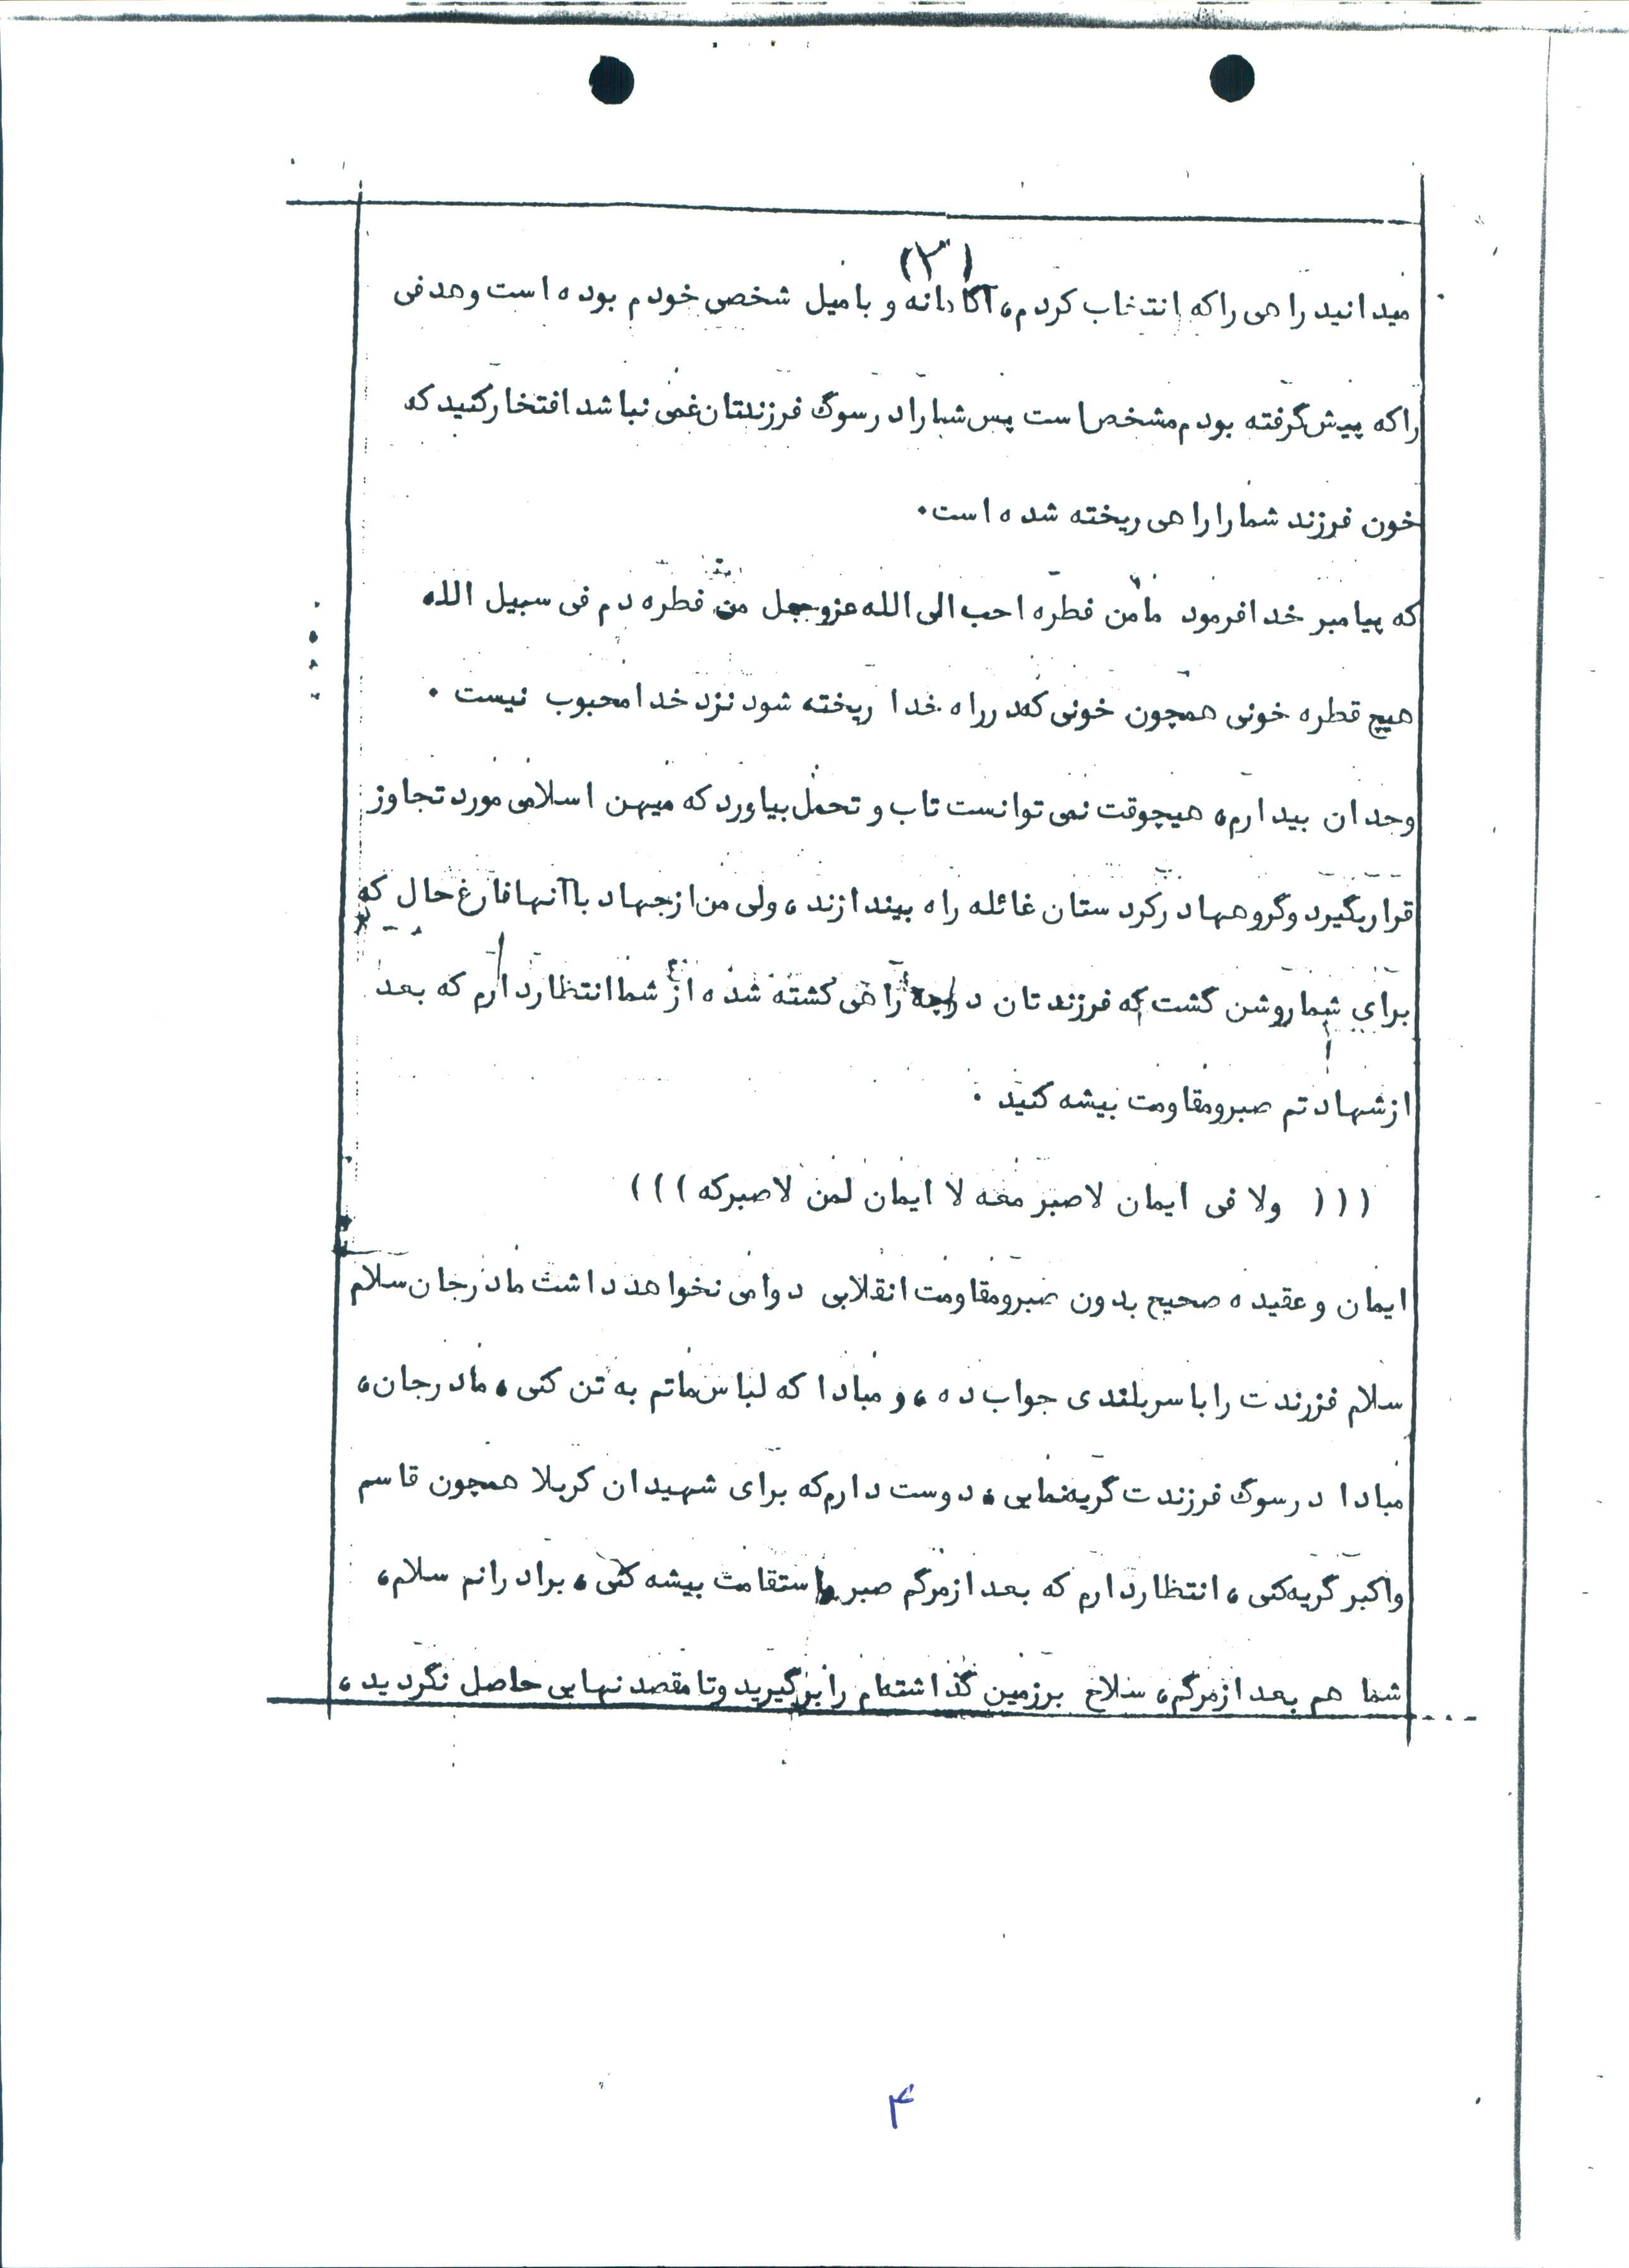 (۳)
میدانید راهی راکه انتخاب کردم، آگاهانه و بامیل شخصی خودم بوده است وهدفی
راکه پیش گرفته بودم مشخص است پس شما را در سوگ فرزندتان غمی نباشد افتخارکنید که
خون فرزند شما را راهی ریخته شده است.
که پیامبر خدا فرمود مامن قطره احب الی الله عزوجل من قطره دم فی سبیل الله
هیچ قطره خونی همچون خونی که در راه خدا ریخته شود نزد خدا محبوب نیست .
وجدان بیدارم، هیچوقت نمی توانست تاب و تحمل بیاورد که میهن اسلامی مورد تجاوز
قرار بگیرد وگروهها در کردستان غائله راه بیندازند، ولی من از جهاد باآنها فارغ حال که
برای شما روشن گشت که فرزندتان در چه راهی کشته شده از شما انتظار دارم که بعد
از شهادتم صبرومقاومت بیشه کنید .
((( ولا فی ایمان لاصبر معه لا ایمان لمن لاصبرکه )))
ایمان و عقیده صحیح بدون صبرومقاومت انقلابی دوامی نخواهد داشت مادرجان سلام
سلام فزرندت را با سربلندی جواب ده، و مبادا که لباس ماتم به تن کنی، مادرجان،
مبادا در سوگ فرزندت گریه نمایی، دوست دارم که برای شهیدان کربلا همچون قاسم
واکبر گریه کنی، انتظار دارم که بعد از مرگم صبر و استقامت بیشه کنی، برادرانم سلام،
شما هم بعد از مرگم، سلاح برزمین گذاشته‌ام را برگیرید وتا مقصد نهایی حاصل نگردید،
۴